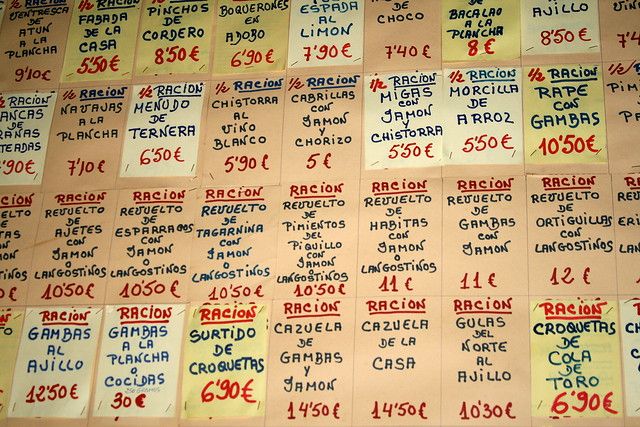 VENTRESCA
ATUN
A LA
PLANCHA
9'10€
FABADA
DE LA
CASA
5'50€
PINCHOS
DE
CORDERO
8'50€
BOQUERONES
EN
ADOBO
6'90€
AL
LIMON
7'90€
DE
CHOCO
7'40€
BACALAO
A LA
PLANCHA
8€
AJILLO
8'50€
RACION
DE
7'90€
1/2 RACION
NAVAJAS
A LA
PLANCHA
7'10€
1/2 RACION
MENUDO
DE
TERNERA
6'50€
1/2 RACION
CHISTORRA
AL
VINO
BLANCO
5'90€
1/2 RACION
CABRILLAS
CON
JAMON
Y
CHORIZO
5€
1/2 RACION
MIGAS
CON
JAMON
Y
CHISTORRA
5'50€
1/2 RACION
MORCILLA
DE
ARROZ
5'50€
1/2 RACION
RAPE
CON
GAMBAS
10'50€
RACION
REVUELTO
DE
AJETES
CON
JAMON
O
LANGOSTINOS
10'50€
RACION
REVUELTO
DE
ESPARRAGOS
CON
JAMON
O
LANGOSTINOS
10'50€
RACION
REVUELTO
DE
TAGARNINA
CON
JAMON
O
LANGOSTINOS
10'50€
RACION
REVUELTO
DE
PIMIENTOS
DEL
PIQUILLO
CON
JAMON
O
LANGOSTINOS
10'50€
RACION
REVUELTO
DE
HABITAS
CON
JAMON
O
LANGOSTINOS
11€
RACION
REVUELTO
DE
GAMBAS
CON
JAMON
11€
RACION
REVUELTO
DE
ORTIGUILLAS
CON
LANGOSTINOS
12€
RACION
GAMBAS
AL
AJILLO
12'50€
RACION
GAMBAS
A LA
PLANCHA
O
COCIDAS
30€
RACION
SURTIDO
DE
CROQUETAS
6'90€
RACION
CAZUELA
DE
GAMBAS
Y
JAMON
14'50€
RACION
CAZUELA
DE LA
CASA
14'50€
RACION
GULAS
DEL
NORTE
AL
AJILLO
10'30€
RACION
CROQUETAS
DE
COLA
DE
TORO
6'90€